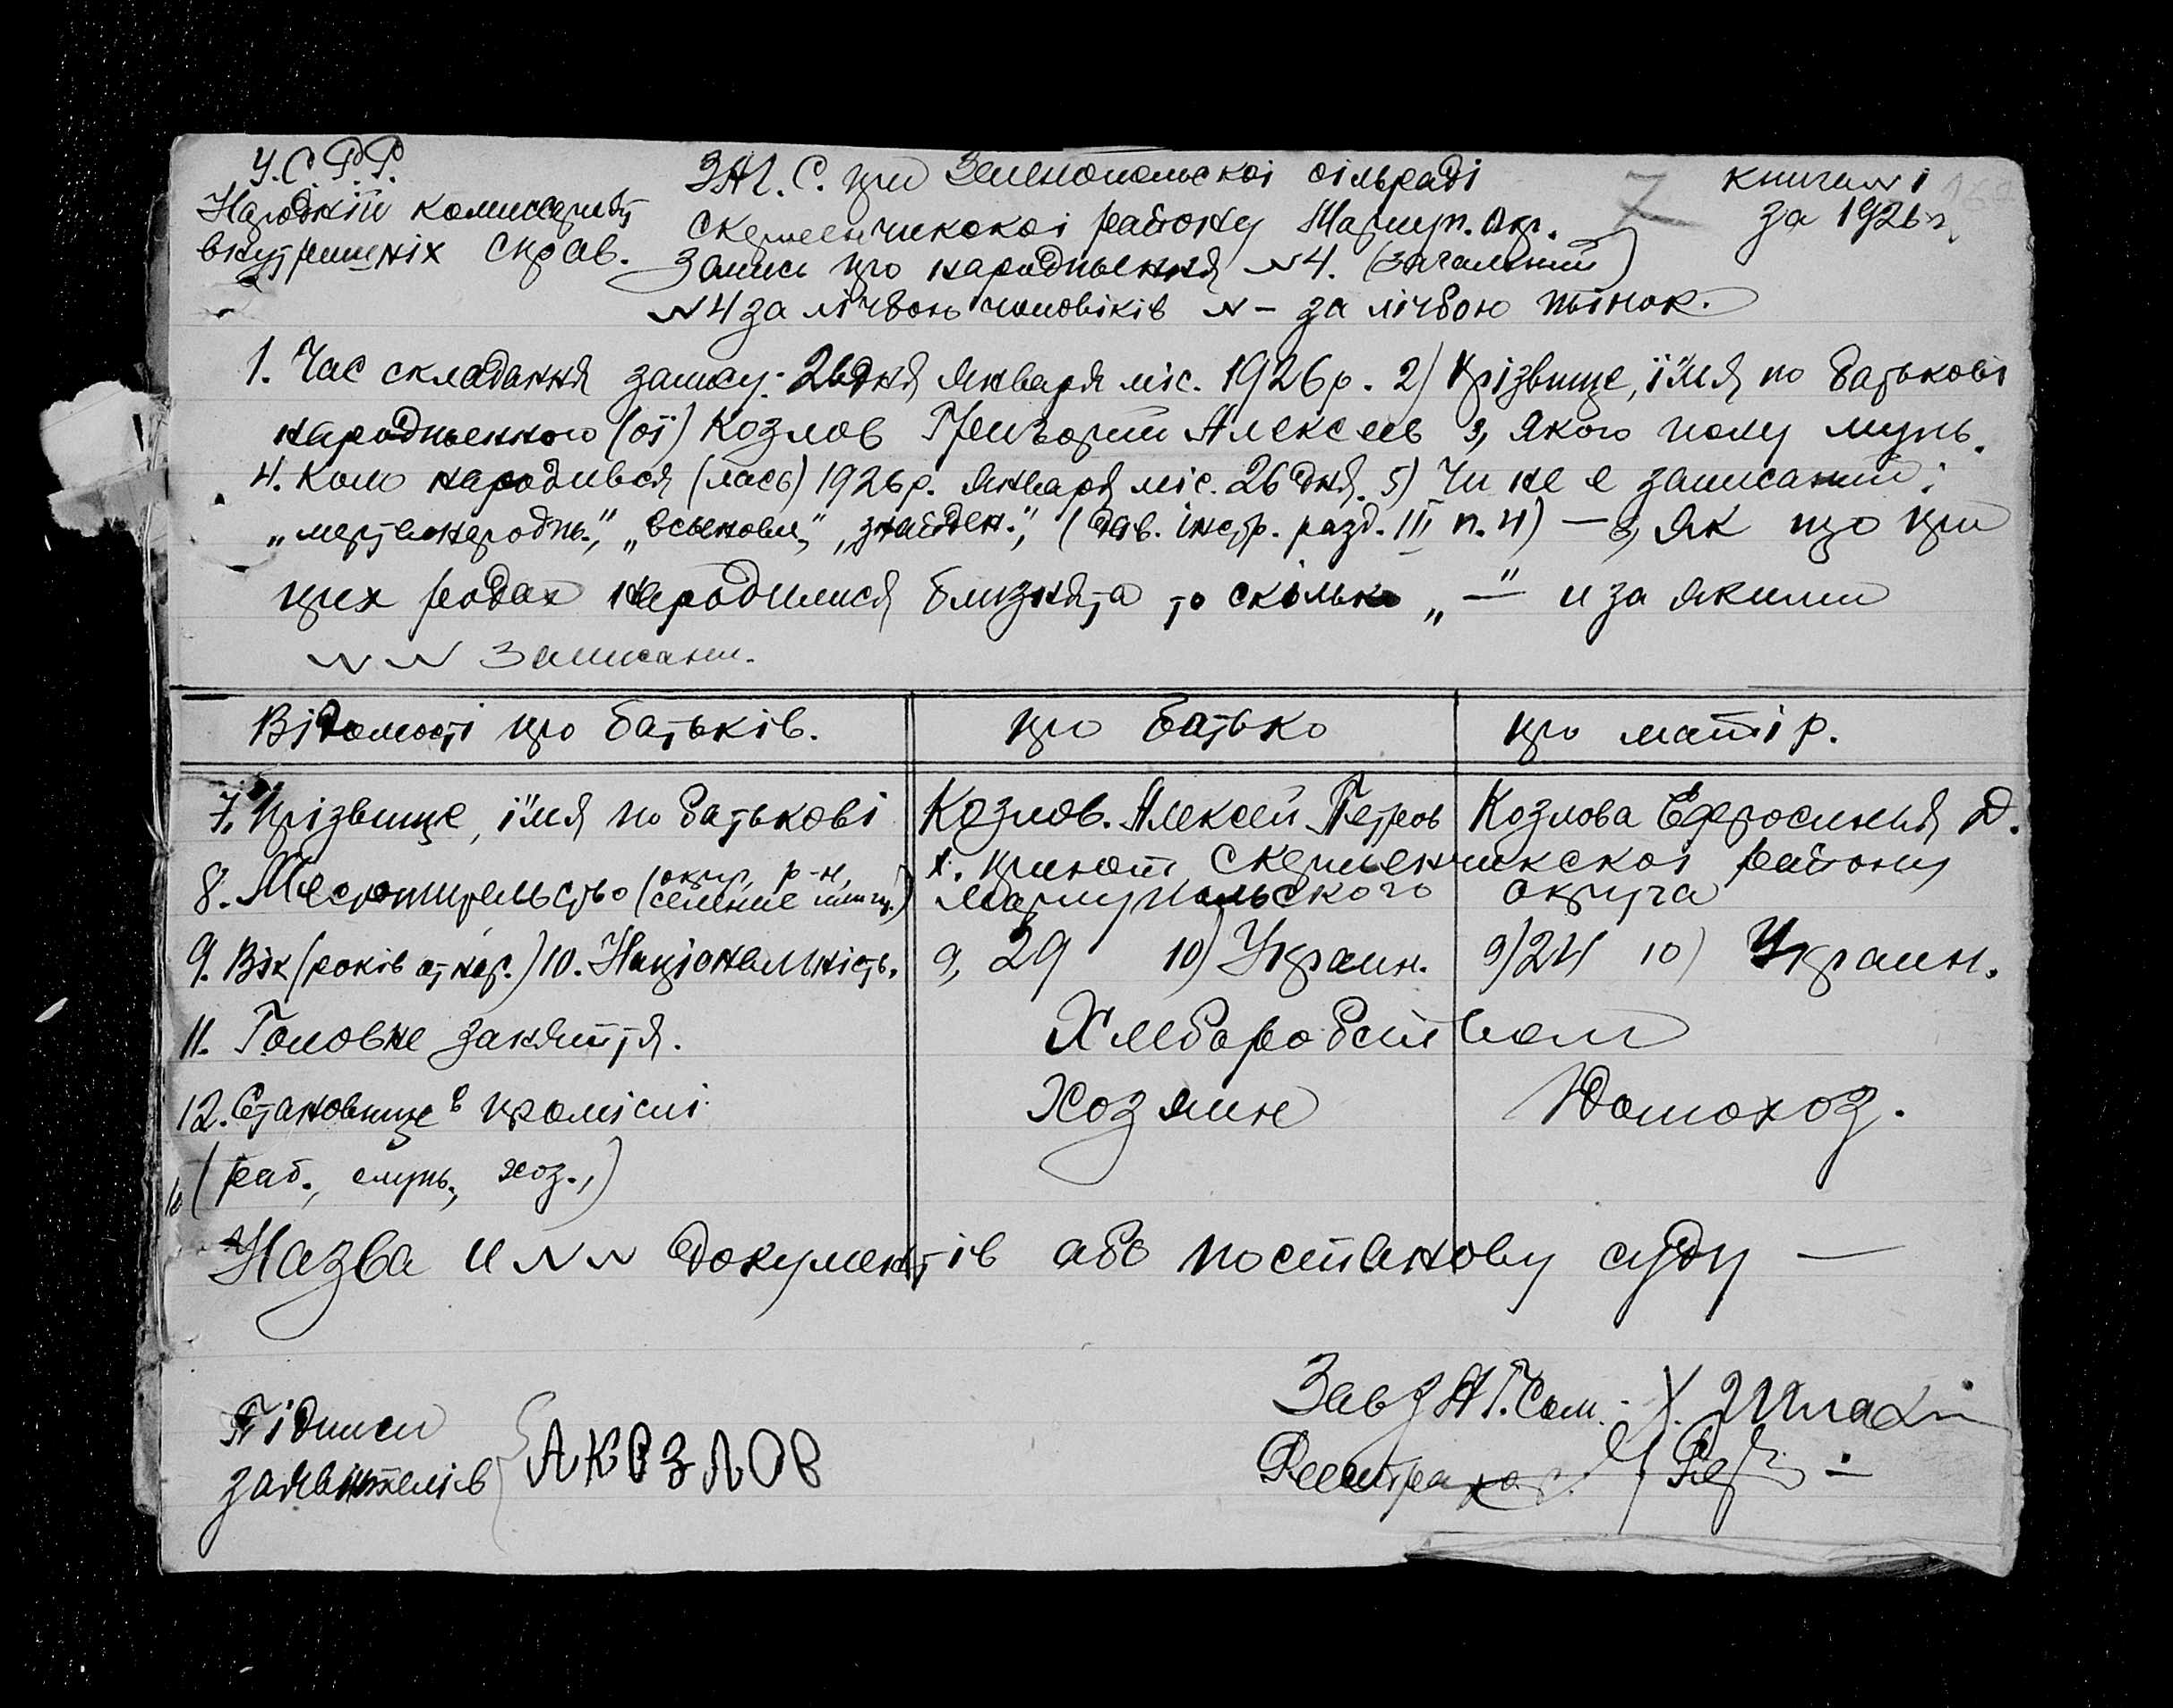 У.С.Р.Р.
Народній комиссаріят
внутрешніх справ.
ЗАГ.С. при Зеленопольскої сільраді
скельеанчикокої району Мариуп. окр.
книги №1
за 1926 г.
7
Запись про народження №4. (загальний)
№4 за лічбою чоловіків № – за лічбою жінок.
1. Час складання запису: 26 дня Января міс. 1926 р. 2) Прізвище, і'мя по батькові
народженного (ої) Козлов Григорий Алексеев 3, Якого полу муж.
4. Коли народивься (лась) 1926 р. Января міс. 26 дня. 5) Чи не е записаний:
„мертвонародж.", „всынов.", „знайден.", ( инстр. разд. III п. 4) — 6, Як що при
цих родах народилися близнята то скілько „—" и за якими
№№ записани.
Відомості про батьків.
про батько
про матір.
7. Прізвище, і'мя по батькові
Козлов. Алексей Петров
Козлова Ефросинья Д.
8. Местожительство (округ, р-н, селение)
х. району
Мариупольского округа
9. Вік (років от нар.) 10. Національність.
9, 29 10) Украин.
9) 24 10) Украин.
11. Головне заняття.
Хлеборобством
12. Становище в промислі
Хозяин
Домохоз.
(раб., служ., хоз.,)
Назва и №№ документів або постанову суду —
Підписи
заявителів
А КОЗЛОВ
Зав ЗАГСом